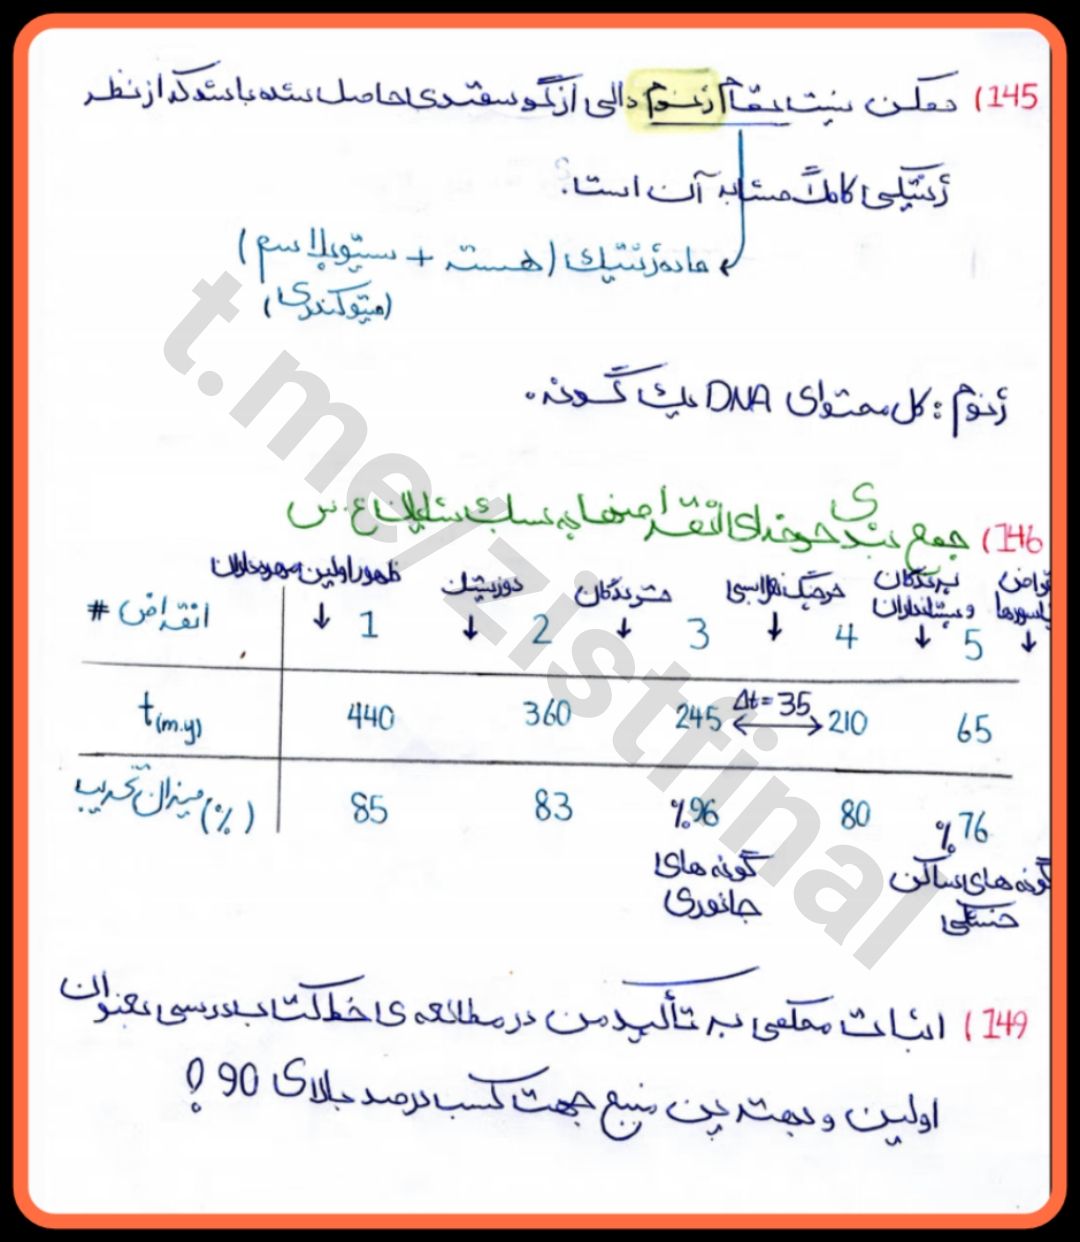 145) ممکن نیست تمام ژنوم دالی از گوسفندی حاصل شده باشد که از نظر
ژنتیکی کاملاً مشابه آن است؟
ماده ژنتیک (هسته + سیتوپلاسم)
(میتوکندری)
ژنوم: کل محتوای DNA یک گونه.
146) جمع بندی خوندای انقراض ها به سبک شایان ع.س
ظهور اولین مهره داران ↓ دوزیستان ↓ خزندگان ↓ خرچنگ نعل اسبی ↓ پرندگان و پستانداران ↓ انقراض دایناسورها ↓
انقراض # 1 2 3 4 5
t(m.y) 440 360 245 Δt=35 210 65
میزان تخریب (%) 85 83 %96 80 %76
گونه های جانوری
گونه های ساکن خشکی
149) اثبات محکمی به تأکید من در مطالعه ی خط کتاب درسی بعنوان
اولین و بهترین منبع جهت کسب درصد بالای 90!
t.me/zistfinal